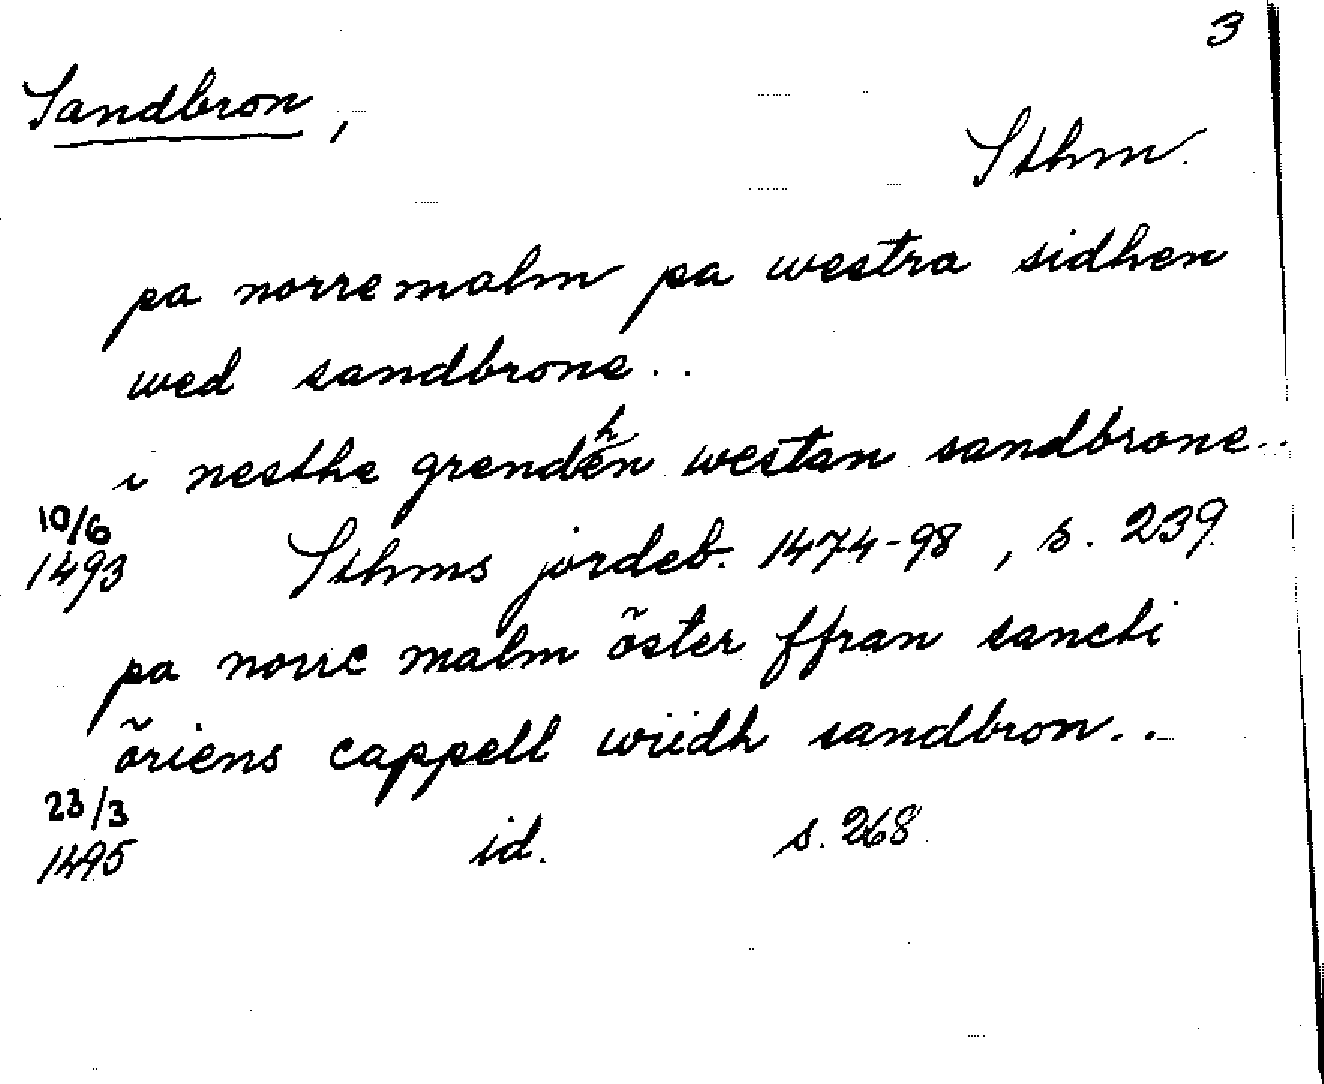 3
Sandbron,
Sthm.
pa norremalm pa westra sidhen
wed sandbrone..
i nesthe grendhen westan sandbrone..
10/6
1493 Sthms jordeb. 1474-98, s. 239.
pa norre malm õster ffran sancti
õriens cappell wiidh sandbron..
23/3
1495 id. s. 268.